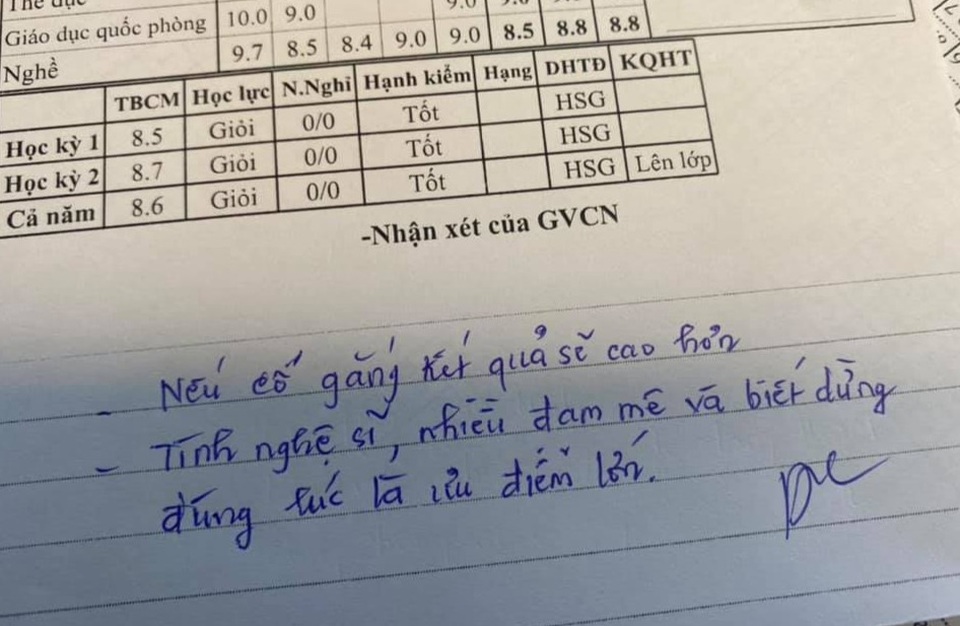 Thể dục 9.0
Giáo dục quốc phòng 10.0 9.0
Nghề 9.7 8.5 8.4 9.0 9.0 8.5 8.8 8.8
TBCM Học lực N.Nghỉ Hạnh kiểm Hạng DHTĐ KQHT
Học kỳ 1 8.5 Giỏi 0/0 Tốt HSG
Học kỳ 2 8.7 Giỏi 0/0 Tốt HSG
Cả năm 8.6 Giỏi 0/0 Tốt HSG Lên lớp
-Nhận xét của GVCN
- Nếu cố gắng kết quả sẽ cao hơn
- Tính nghệ sĩ, nhiều đam mê và biết dừng
đúng lúc là ưu điểm lớn.